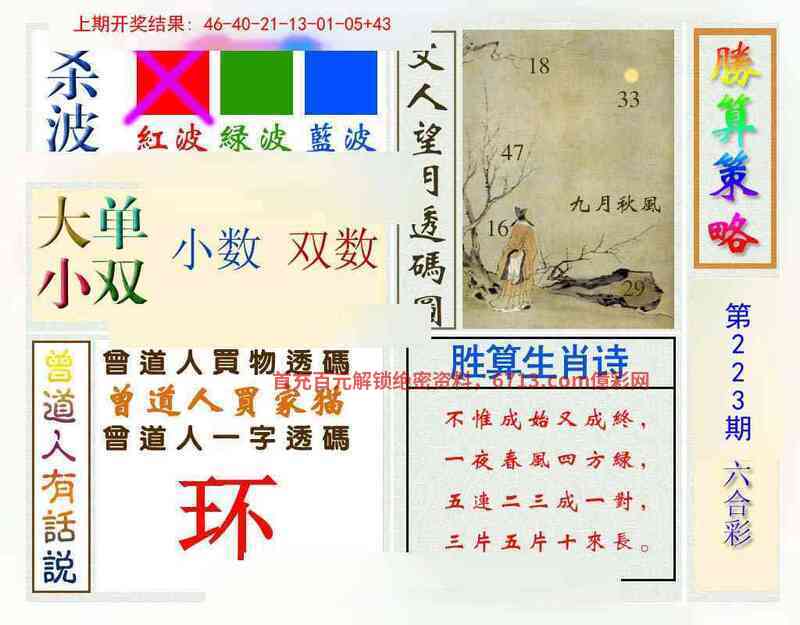 上期开奖结果：46-40-21-13-01-05+43
杀波
紅波 緑波 藍波
大单
小双
小数 双数
文人望月透碼圖
18
33
47
九月秋風
16
29
勝算策略
第223期 六合彩
曾道人有話説
曾道人買物透碼
曾道人買家猫
曾道人一字透碼
环
胜算生肖诗
首充百元解锁绝密资料，6713.com億彩网
不惟成始又成終，
一夜春風四方緑，
五連二三成一對，
三片五片十來長。